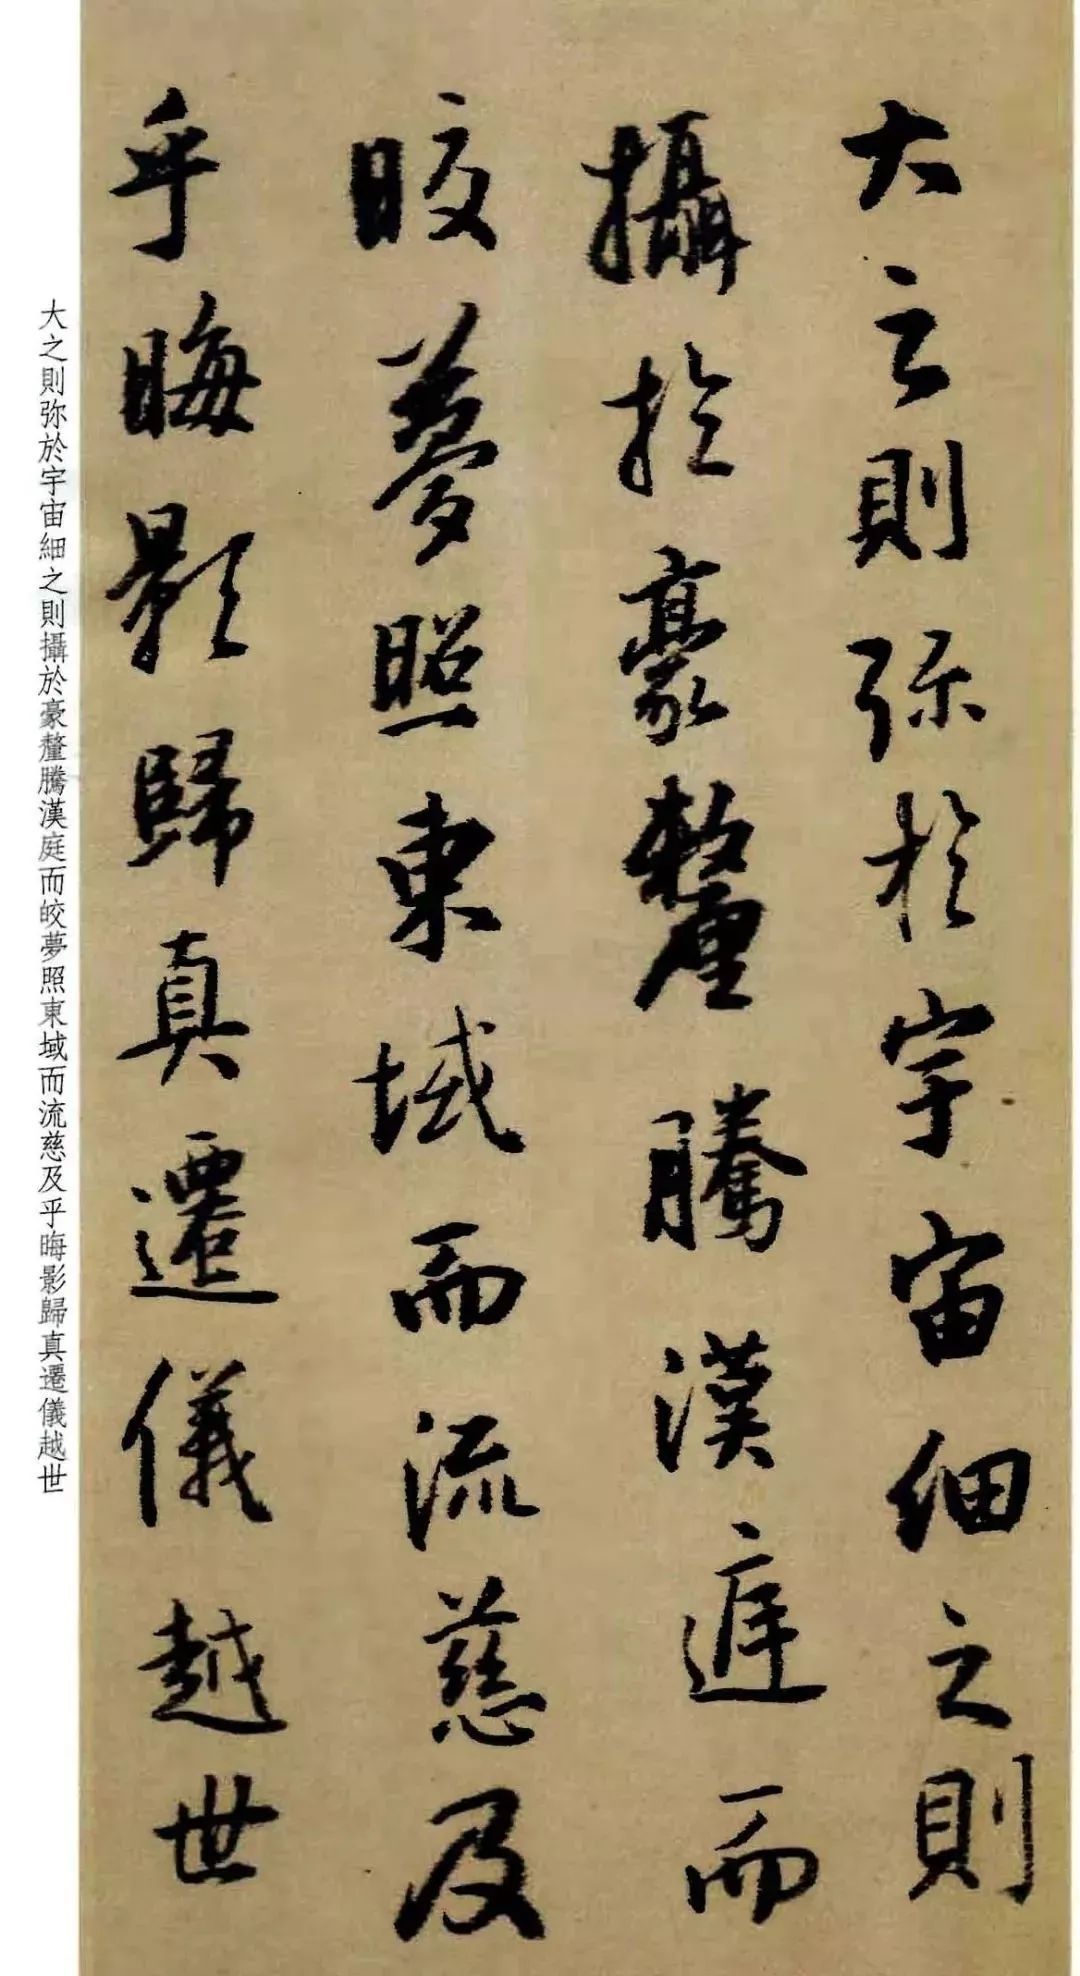 大之則弥於宇宙細之則
攝於豪釐騰漢庭而
皎夢照東域而流慈及
乎晦影歸真遷儀越世
大之則弥於宇宙細之則攝於豪釐騰漢庭而皎夢照東域而流慈及乎晦影歸真遷儀越世